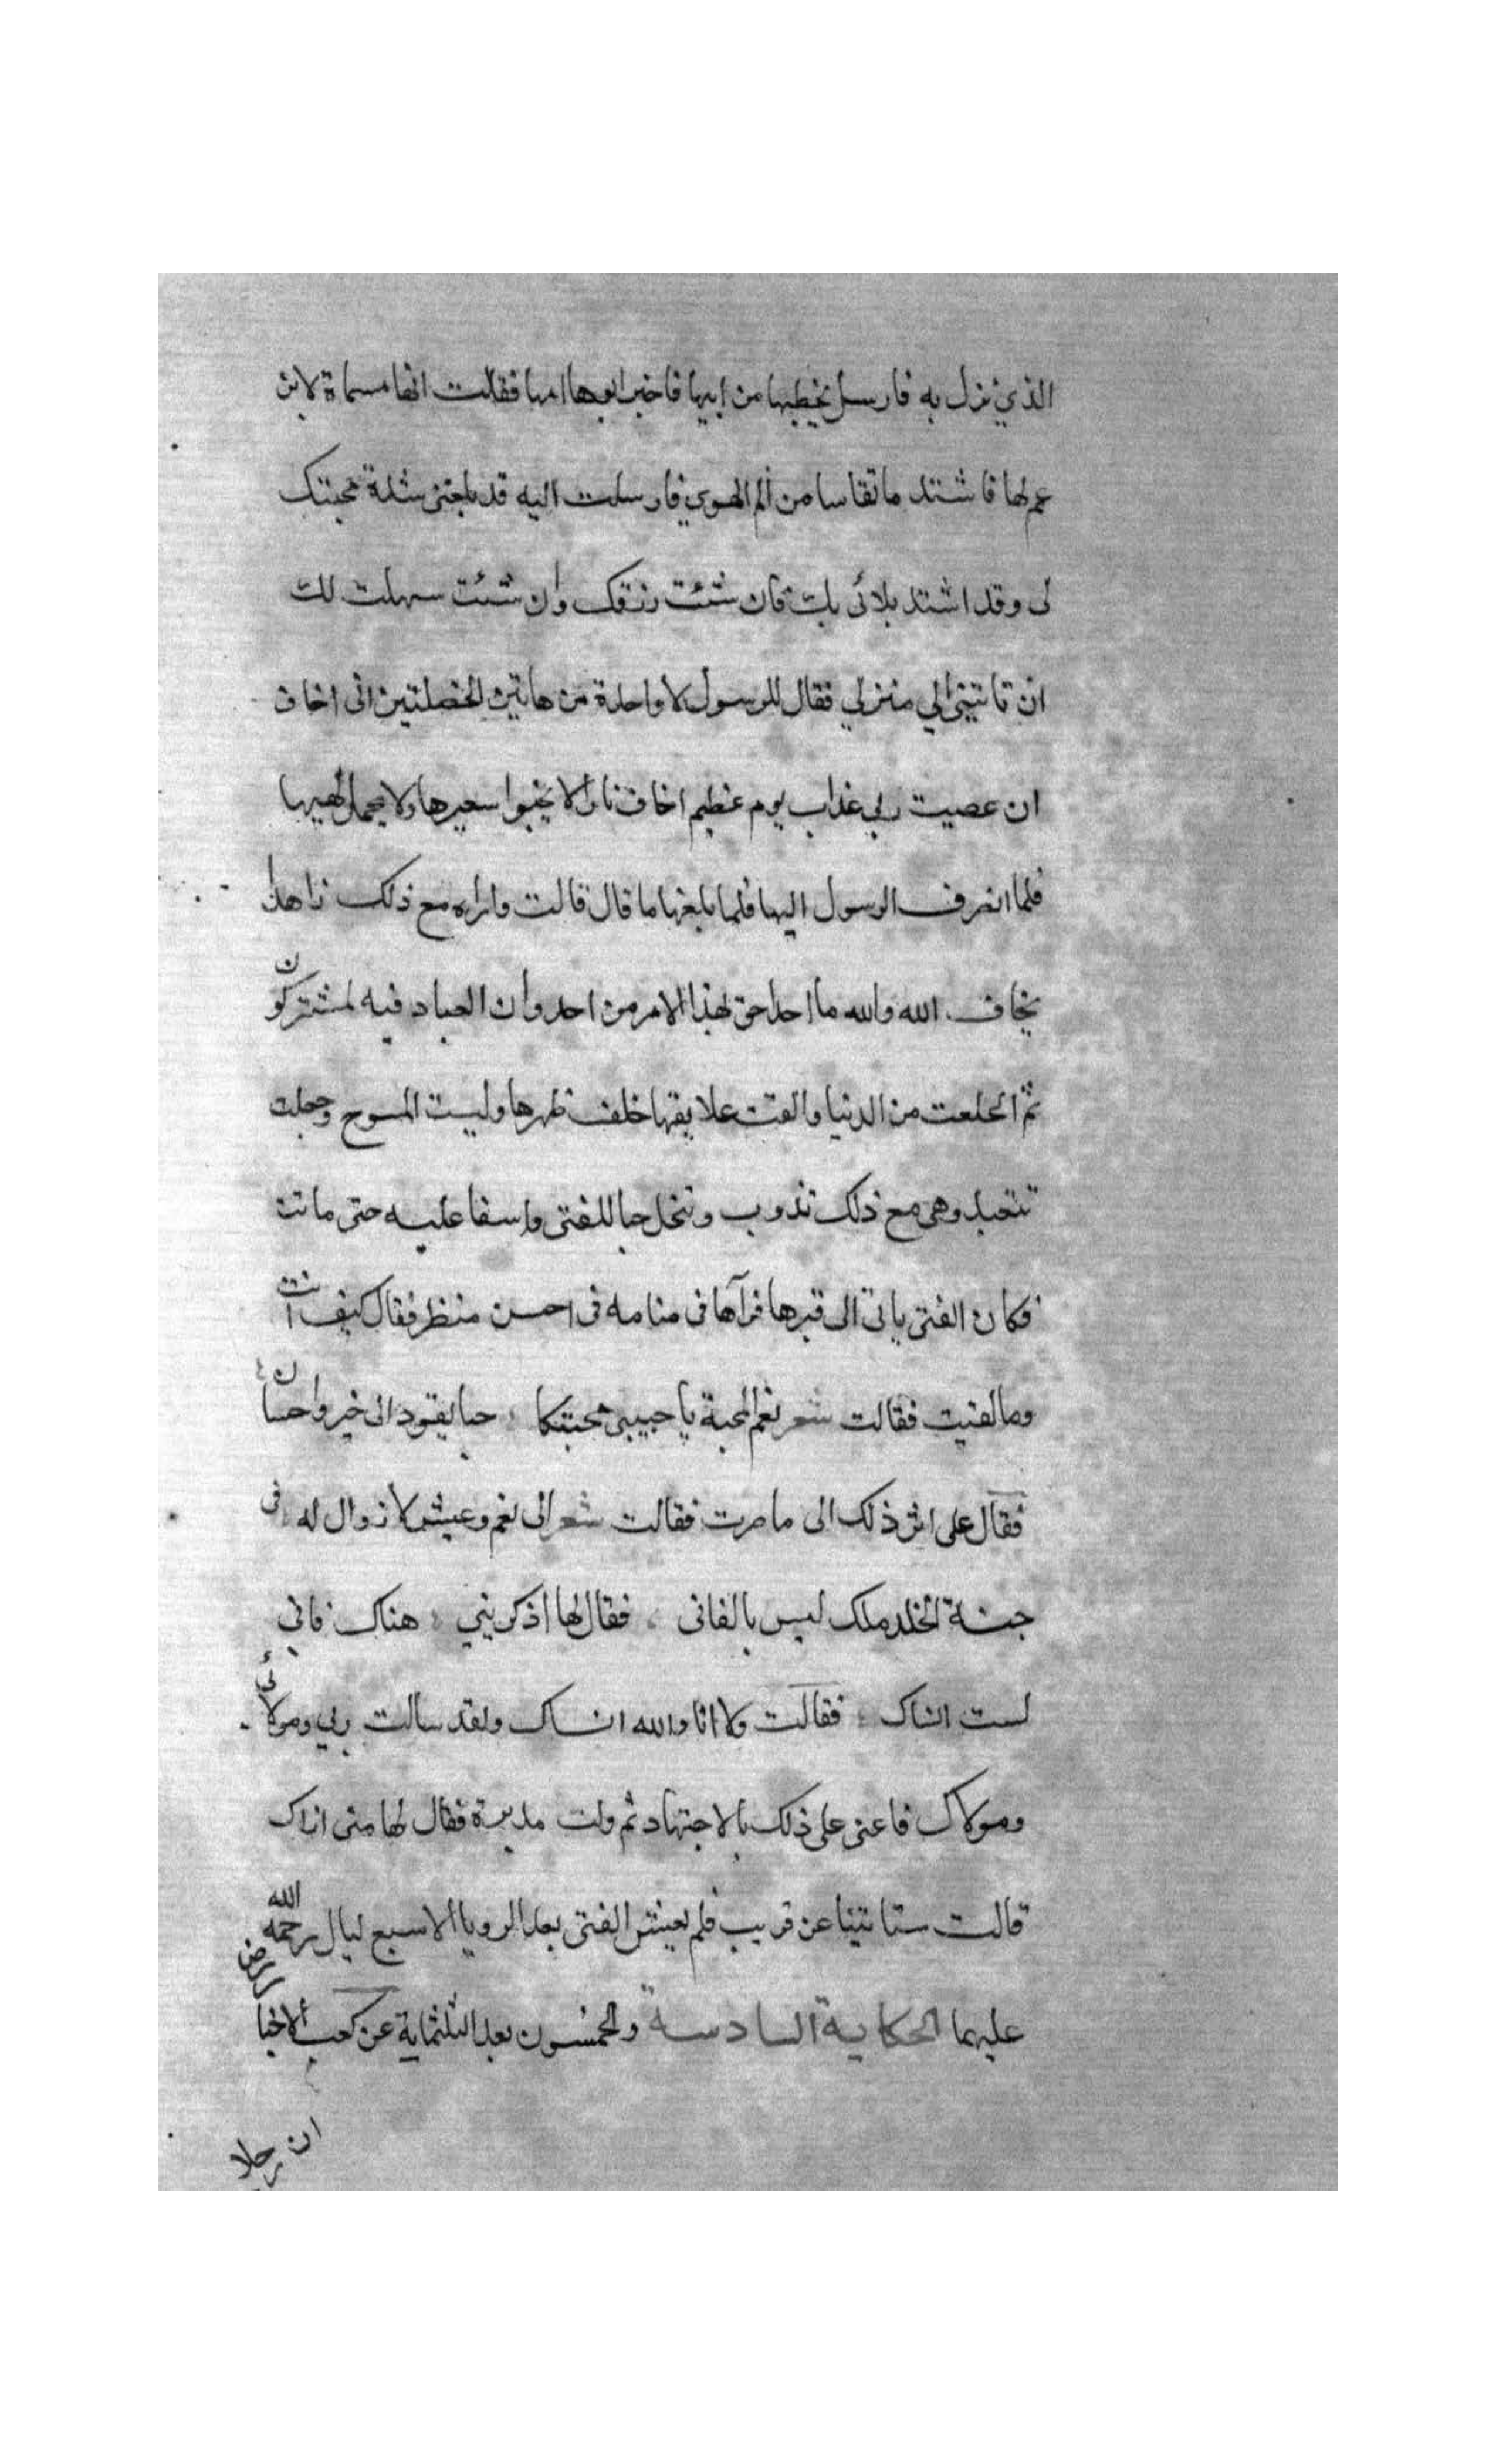 الذي نزل به فارسل يخطبها من ابيها فاخبر ابوها امها فقالت انها مسماة لابن
عم لها فاشتد ما تقاسا من الم الهوي فارسلت اليه قد بلغني شدة محبتك
لي وقد اشتد بلائي بك فان شئت زرتك وان شئت سهلت لك
ان تاتيني الي منزلي فقال للرسول لا واحدة من هاتين الخصلتين اني اخاف
ان عصيت ربي عذاب يوم عظيم اخاف نارا لا يخبوا سعيرها ولا يخمد لهيبها
فلما انصرف الرسول اليها فلما بلغها ما قال قالت واراه مع ذلك زاهدا
يخاف الله والله ما احد احق بهذا الامر من احد وان العباد فيه لمشتركون
ثم انخلعت من الدنيا والقت علايقها خلف ظهرها ولبست المسوح وجعلت
تتعبد وهي مع ذلك تذوب وتنحل حبا للفتى واسفا عليه حتى ماتت
فكان الفتى ياتي الى قبرها فرآها في منامه في احسن منظر فقال كيف انت
وما لقيت فقالت شعر نعم المحبة يا حبيبي محبتكا حبا يقود الى خير واحسان
فقال على اثر ذلك الى ما صرت فقالت شعر الى نعم وعيش لا زوال له في
جنة الخلد ملك ليس بالفاني فقال لها اذكريني هناك فاني
لست انساك فقالت ولا انا والله انساك ولقد سالت ربي ومولائي
ومولاك فاعني على ذلك بالاجتهاد ثم ولت مدبرة فقال لها متى اراك
قالت ستاتينا عن قريب فلم يعيش الفتى بعد الرويا الا سبع ليال رحمه الله
عليهما الحكاية السادسة والخمسون بعد الثلثماية عن كعب الاخبار رض
ان رجلا